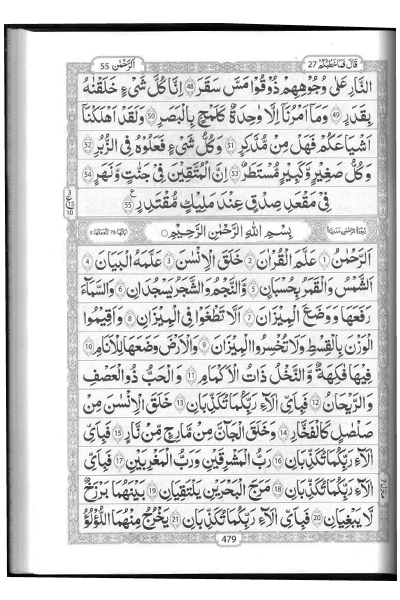 قَالَ فَمَا خَطْبُكُمْ 27 اَلرَّحْمٰن 55
النَّارِ عَلٰى وُجُوْهِهِمْ ذُوْقُوْا مَسَّ سَقَرَ 48 اِنَّا كُلَّ شَىْءٍ خَلَقْنٰهُ
بِقَدَرٍ 49 وَمَاۤ اَمْرُنَاۤ اِلَّا وَاحِدَةٌ كَلَمْحٍۢ بِالْبَصَرِ 50 وَلَقَدْ اَهْلَكْنَاۤ
اَشْيَاعَكُمْ فَهَلْ مِنْ مُّدَّكِرٍ 51 وَكُلُّ شَىْءٍ فَعَلُوْهُ فِى الزُّبُرِ 52
وَكُلُّ صَغِيْرٍ وَّكَبِيْرٍ مُّسْتَطَرٌ 53 اِنَّ الْمُتَّقِيْنَ فِىْ جَنّٰتٍ وَّنَهَرٍ 54
فِىْ مَقْعَدِ صِدْقٍ عِنْدَ مَلِيْكٍ مُّقْتَدِرٍ 55
بِسْمِ اللّٰهِ الرَّحْمٰنِ الرَّحِيْمِ
اَلرَّحْمٰنُ 1 عَلَّمَ الْقُرْاٰنَ 2 خَلَقَ الْاِنْسَانَ 3 عَلَّمَهُ الْبَيَانَ 4
اَلشَّمْسُ وَالْقَمَرُ بِحُسْبَانٍ 5 وَّالنَّجْمُ وَالشَّجَرُ يَسْجُدَانِ 6 وَالسَّمَآءَ
رَفَعَهَا وَوَضَعَ الْمِيْزَانَ 7 اَلَّا تَطْغَوْا فِى الْمِيْزَانِ 8 وَاَقِيْمُوا
الْوَزْنَ بِالْقِسْطِ وَلَا تُخْسِرُوا الْمِيْزَانَ 9 وَالْاَرْضَ وَضَعَهَا لِلْاَنَامِ 10
فِيْهَا فَاكِهَةٌ وَّالنَّخْلُ ذَاتُ الْاَكْمَامِ 11 وَالْحَبُّ ذُو الْعَصْفِ
وَالرَّيْحَانُ 12 فَبِاَىِّ اٰلَاۤءِ رَبِّكُمَا تُكَذِّبٰنِ 13 خَلَقَ الْاِنْسَانَ مِنْ
صَلْصَالٍ كَالْفَخَّارِ 14 وَخَلَقَ الْجَآنَّ مِنْ مَّارِجٍ مِّنْ نَّارٍ 15 فَبِاَىِّ
اٰلَاۤءِ رَبِّكُمَا تُكَذِّبٰنِ 16 رَبُّ الْمَشْرِقَيْنِ وَرَبُّ الْمَغْرِبَيْنِ 17 فَبِاَىِّ
اٰلَاۤءِ رَبِّكُمَا تُكَذِّبٰنِ 18 مَرَجَ الْبَحْرَيْنِ يَلْتَقِيٰنِ 19 بَيْنَهُمَا بَرْزَخٌ
لَّا يَبْغِيٰنِ 20 فَبِاَىِّ اٰلَاۤءِ رَبِّكُمَا تُكَذِّبٰنِ 21 يَخْرُجُ مِنْهُمَا اللُّؤْلُؤُ
479